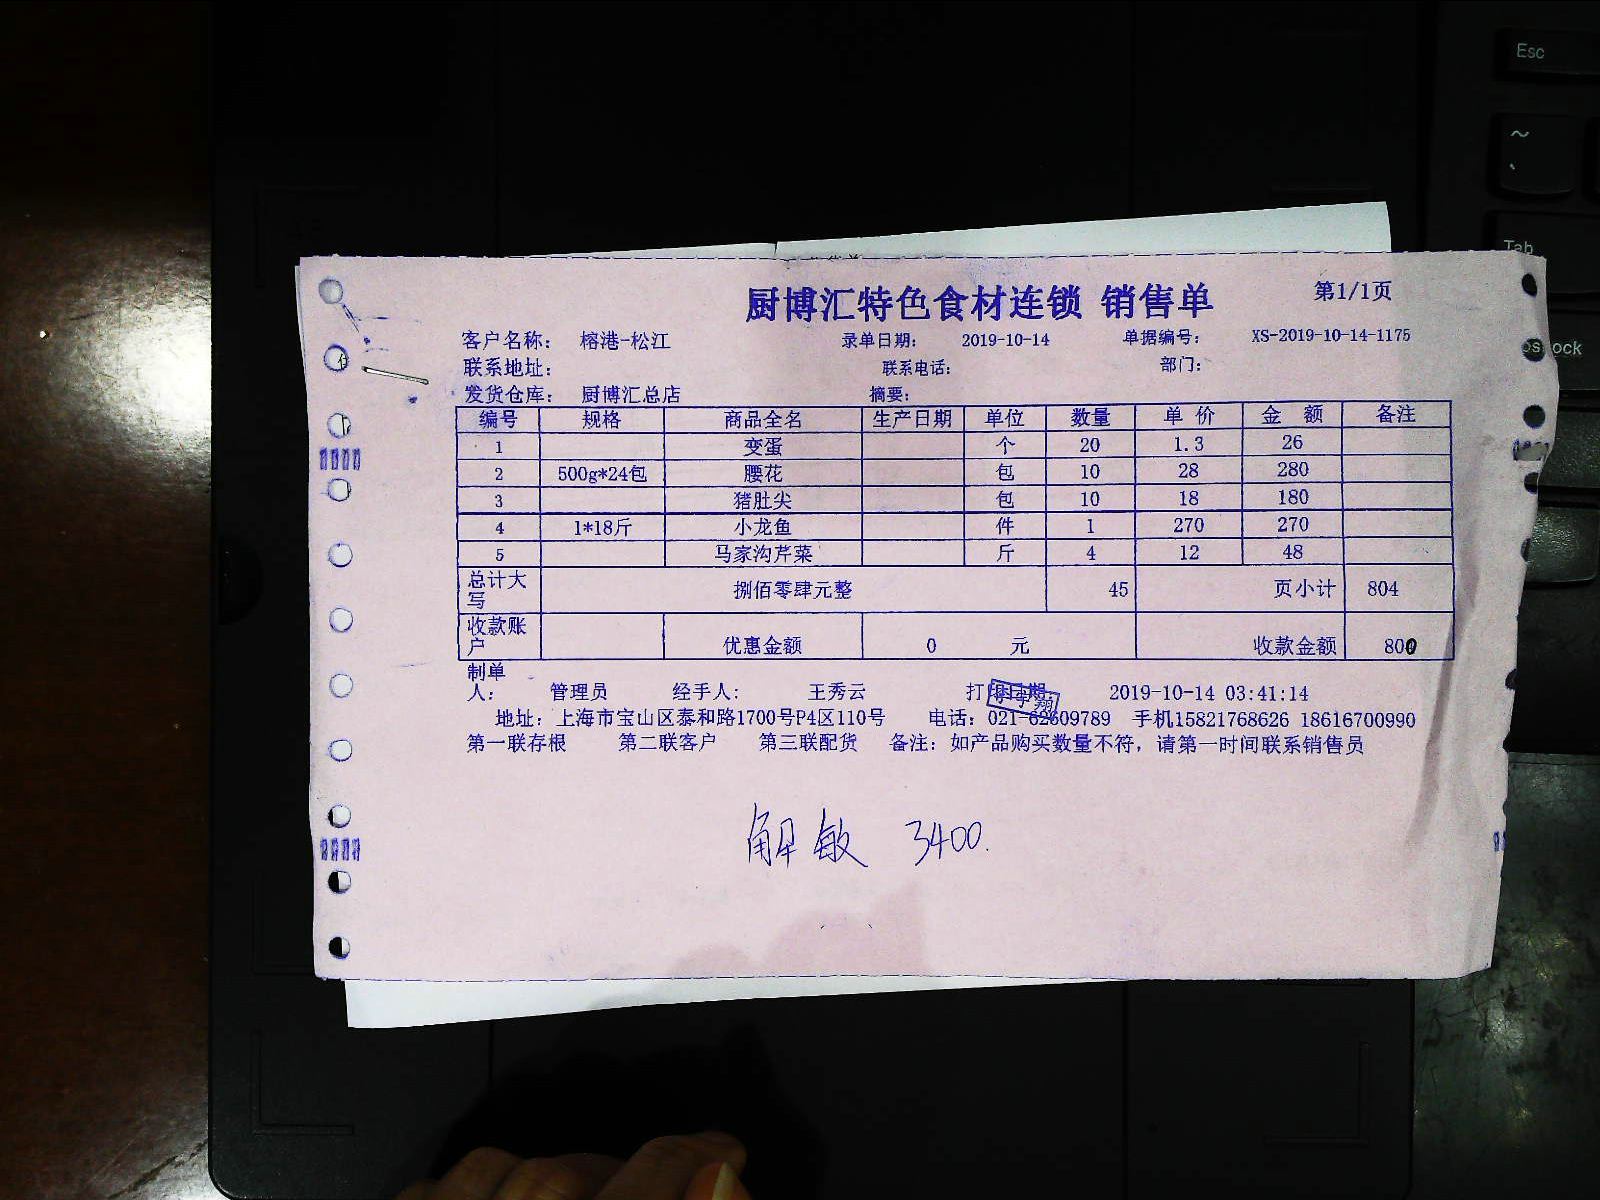 厨博汇特色食材连锁 销售单 第1/1页
客户名称： 榕港-松江 录单日期： 2019-10-14 单据编号： XS-2019-10-14-1175
联系地址： 联系电话： 部门：
发货仓库： 厨博汇总店 摘要：
编号 规格 商品全名 生产日期 单位 数量 单 价 金 额 备注
1 变蛋 个 20 1.3 26
2 500g*24包 腰花 包 10 28 280
3 猪肚尖 包 10 18 180
4 1*18斤 小龙鱼 件 1 270 270
5 马家沟芹菜 斤 4 12 48
总计大写 捌佰零肆元整 45 页小计 804
收款账户 优惠金额 0 元 收款金额 800
制单人： 管理员 经手人： 王秀云 打印日期： 2019-10-14 03:41:14
地址：上海市宝山区泰和路1700号P4区110号 电话：021-62609789 手机15821768626 18616700990
第一联存根 第二联客户 第三联配货 备注：如产品购买数量不符，请第一时间联系销售员
解敏 3400.
Esc
~
Tab
ock